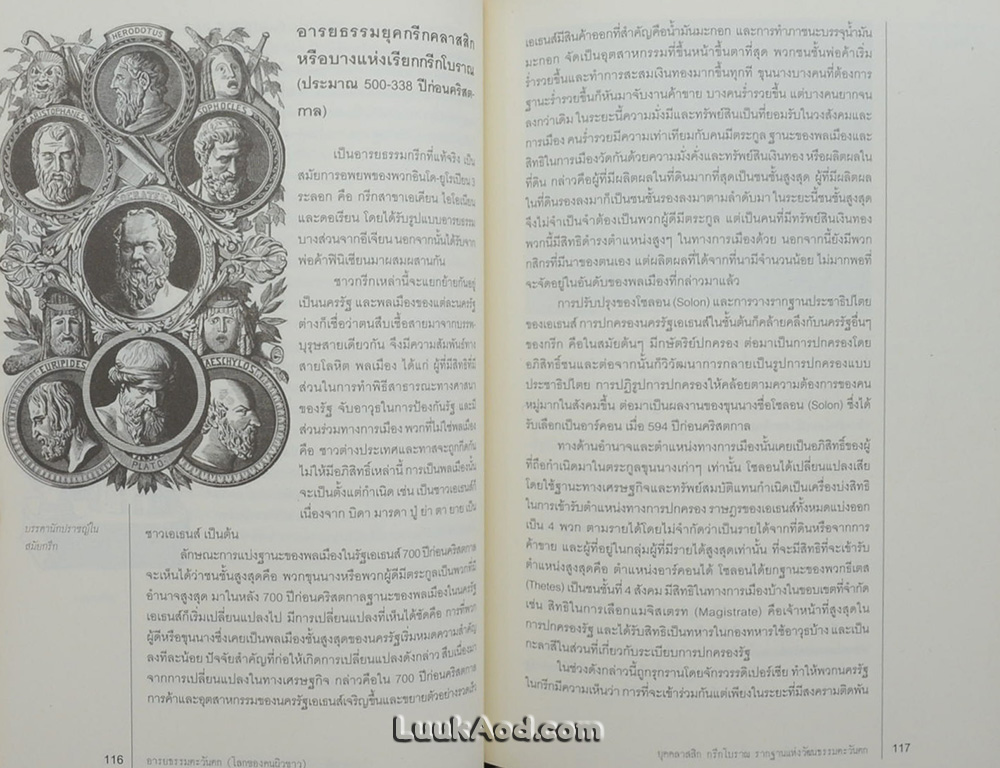 HERODOTUS
ARISTOPHANES
SOPHOCLES
SOCRATES
EURIPIDES
AESCHYLOS
PLATO
บรรดานักปราชญ์ใน
สมัยกรีก
อารยธรรมยุคกรีกคลาสสิก
หรือบางแห่งเรียกกรีกโบราณ
(ประมาณ 500-338 ปีก่อนคริสต-
กาล)
เป็นอารยธรรมกรีกที่แท้จริง เป็น
สมัยการอพยพของพวกอินโด-ยูโรเปียน 3
ระลอก คือ กรีกสาขาเอเคียน ไอโอเนียน
และดอเรียน โดยได้รับรูปแบบอารยธรรม
บางส่วนจากอีเจียน นอกจากนั้นได้รับจาก
พ่อค้าฟินิเชียนมาผสมผสานกัน
ชาวกรีกเหล่านี้จะแยกย้ายกันอยู่
เป็นนครรัฐ และพลเมืองของแต่ละนครรัฐ
ต่างก็เชื่อว่าตนสืบเชื้อสายมาจากบรรพ-
บุรุษสายเดียวกัน จึงมีความสัมพันธ์ทาง
สายโลหิต พลเมือง ได้แก่ ผู้ที่มีสิทธิที่มี
ส่วนในการทำพิธีสาธารณะทางศาสนา
ของรัฐ จับอาวุธในการป้องกันรัฐ และมี
ส่วนร่วมทางการเมือง พวกที่ไม่ใช่พลเมือง
คือ ชาวต่างประเทศและทาสจะถูกกีดกัน
ไม่ให้มีอภิสิทธิ์เหล่านี้ การเป็นพลเมืองนั้น
จะเป็นตั้งแต่กำเนิด เช่น เป็นชาวเอเธนส์ก็
เนื่องจาก บิดา มารดา ปู่ ย่า ตา ยาย เป็น
ชาวเอเธนส์ เป็นต้น
ลักษณะการแบ่งฐานะของพลเมืองในรัฐเอเธนส์ 700 ปีก่อนคริสตกาล
จะเห็นได้ว่าชนชั้นสูงสุดคือ พวกขุนนางหรือพวกผู้ดีมีตระกูลเป็นพวกที่มี
อำนาจสูงสุด มาในหลัง 700 ปีก่อนคริสตกาลฐานะของพลเมืองในนครรัฐ
เอเธนส์ก็เริ่มเปลี่ยนแปลงไป มีการเปลี่ยนแปลงที่เห็นได้ชัดคือ การที่พวก
ผู้ดีหรือขุนนางซึ่งเคยเป็นพลเมืองชั้นสูงสุดของนครรัฐเริ่มหมดความสำคัญ
ลงทีละน้อย ปัจจัยสำคัญที่ก่อให้เกิดการเปลี่ยนแปลงดังกล่าว สืบเนื่องมา
จากการเปลี่ยนแปลงในทางเศรษฐกิจ กล่าวคือใน 700 ปีก่อนคริสตกาล
การค้าและอุตสาหกรรมของนครรัฐเอเธนส์เจริญขึ้นและขยายตัวอย่างรวดเร็ว
116 อารยธรรมตะวันตก (โลกของคนผิวขาว)
เอเธนส์มีสินค้าออกที่สำคัญคือน้ำมันมะกอก และการทำภาชนะบรรจุน้ำมัน
มะกอก จัดเป็นอุตสาหกรรมที่ขึ้นหน้าขึ้นตาที่สุด พวกชนชั้นพ่อค้าเริ่ม
ร่ำรวยขึ้นและทำการสะสมเงินทองมากขึ้นทุกที ขุนนางบางคนที่ต้องการ
ฐานะร่ำรวยขึ้นก็หันมาจับงานค้าขาย บางคนร่ำรวยขึ้น แต่บางคนยากจน
ลงกว่าเดิม ในระยะนี้ความมั่งมีและทรัพย์สินเป็นที่ยอมรับในวงสังคมและ
การเมือง คนร่ำรวยมีความเท่าเทียมกับคนมีตระกูล ฐานะของพลเมืองและ
สิทธิในการเมืองวัดกันด้วยความมั่งคั่งและทรัพย์สินเงินทอง หรือผลิตผลใน
ที่ดิน กล่าวคือผู้ที่มีผลิตผลในที่ดินมากที่สุดเป็นชนชั้นสูงสุด ผู้ที่มีผลิตผล
ในที่ดินรองลงมาก็เป็นชนชั้นรองลงมาตามลำดับมา ในระยะนี้ชนชั้นสูงสุด
จึงไม่จำเป็นจำต้องเป็นพวกผู้ดีมีตระกูล แต่เป็นคนที่มีทรัพย์สินเงินทอง
พวกนี้มีสิทธิดำรงตำแหน่งสูงๆ ในทางการเมืองด้วย นอกจากนี้ยังมีพวก
กสิกรที่มีนาของตนเอง แต่ผลิตผลที่ได้จากที่นามีจำนวนน้อย ไม่มากพอที่
จะจัดอยู่ในอันดับของพลเมืองที่กล่าวมาแล้ว
การปรับปรุงของโซลอน (Solon) และการวางรากฐานประชาธิปไตย
ของเอเธนส์ การปกครองนครรัฐเอเธนส์ในชั้นต้นก็คล้ายคลึงกับนครรัฐอื่นๆ
ของกรีก คือในสมัยต้นๆ มีกษัตริย์ปกครอง ต่อมาเป็นการปกครองโดย
อภิสิทธิ์ชนและต่อจากนั้นก็วิวัฒนาการกลายเป็นรูปการปกครองแบบ
ประชาธิปไตย การปฏิรูปการปกครองให้คล้อยตามความต้องการของคน
หมู่มากในสังคมขึ้น ต่อมาเป็นผลงานของขุนนางชื่อโซลอน (Solon) ซึ่งได้
รับเลือกเป็นอาร์คอน เมื่อ 594 ปีก่อนคริสตกาล
ทางด้านอำนาจและตำแหน่งทางการเมืองนั้นเคยเป็นอภิสิทธิ์ของผู้
ที่ถือกำเนิดมาในตระกูลขุนนางเก่าๆ เท่านั้น โซลอนได้เปลี่ยนแปลงเสีย
โดยใช้ฐานะทางเศรษฐกิจและทรัพย์สมบัติแทนกำเนิดเป็นเครื่องบ่งสิทธิ
ในการเข้ารับตำแหน่งทางการปกครอง ราษฎรของเอเธนส์ทั้งหมดแบ่งออก
เป็น 4 พวก ตามรายได้โดยไม่จำกัดว่าเป็นรายได้จากที่ดินหรือจากการ
ค้าขาย และผู้ที่อยู่ในกลุ่มผู้ที่มีรายได้สูงสุดเท่านั้น ที่จะมีสิทธิที่จะเข้ารับ
ตำแหน่งสูงสุดคือ ตำแหน่งอาร์คอนได้ โซลอนได้ยกฐานะของพวกธีเตส
(Thetes) เป็นชนชั้นที่ 4 สังคม มีสิทธิในทางการเมืองบ้างในขอบเขตที่จำกัด
เช่น สิทธิในการเลือกแมจิสเตรท (Magistrate) คือเจ้าหน้าที่สูงสุดใน
การปกครองรัฐ และได้รับสิทธิเป็นทหารในกองทหารใช้อาวุธบ้าง และเป็น
กะลาสีในส่วนที่เกี่ยวกับระเบียบการปกครองรัฐ
ในช่วงดังกล่าวนี้ถูกรุกรานโดยจักรวรรดิเปอร์เซีย ทำให้พวกนครรัฐ
ในกรีกมีความเห็นว่า การที่จะเข้าร่วมกันแต่เพียงในระยะที่มีสงครามติดพัน
ยุคคลาสสิก กรีกโบราณ รากฐานแห่งวัฒนธรรมตะวันตก 117
LuukAod.com